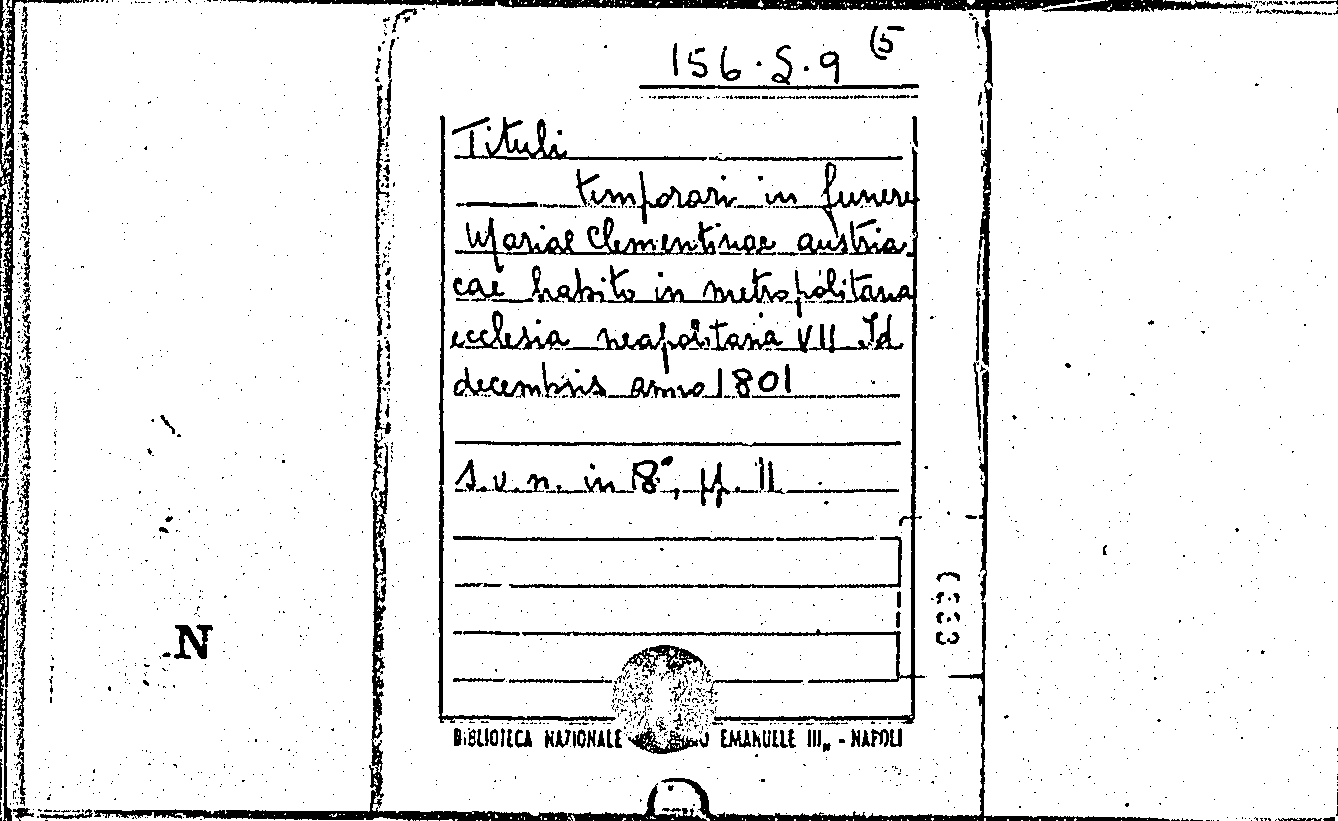 156.S.9 (5
Tituli
temporari in funere
Mariae Clementinae austria
cae habito in metropolitana
ecclesia neapolitana VII Id
decembris anno 1801
s.u.n. in 8°, pp. 11
N
BIBLIOTECA NAZIONALE EMANUELE III„ - NAPOLI